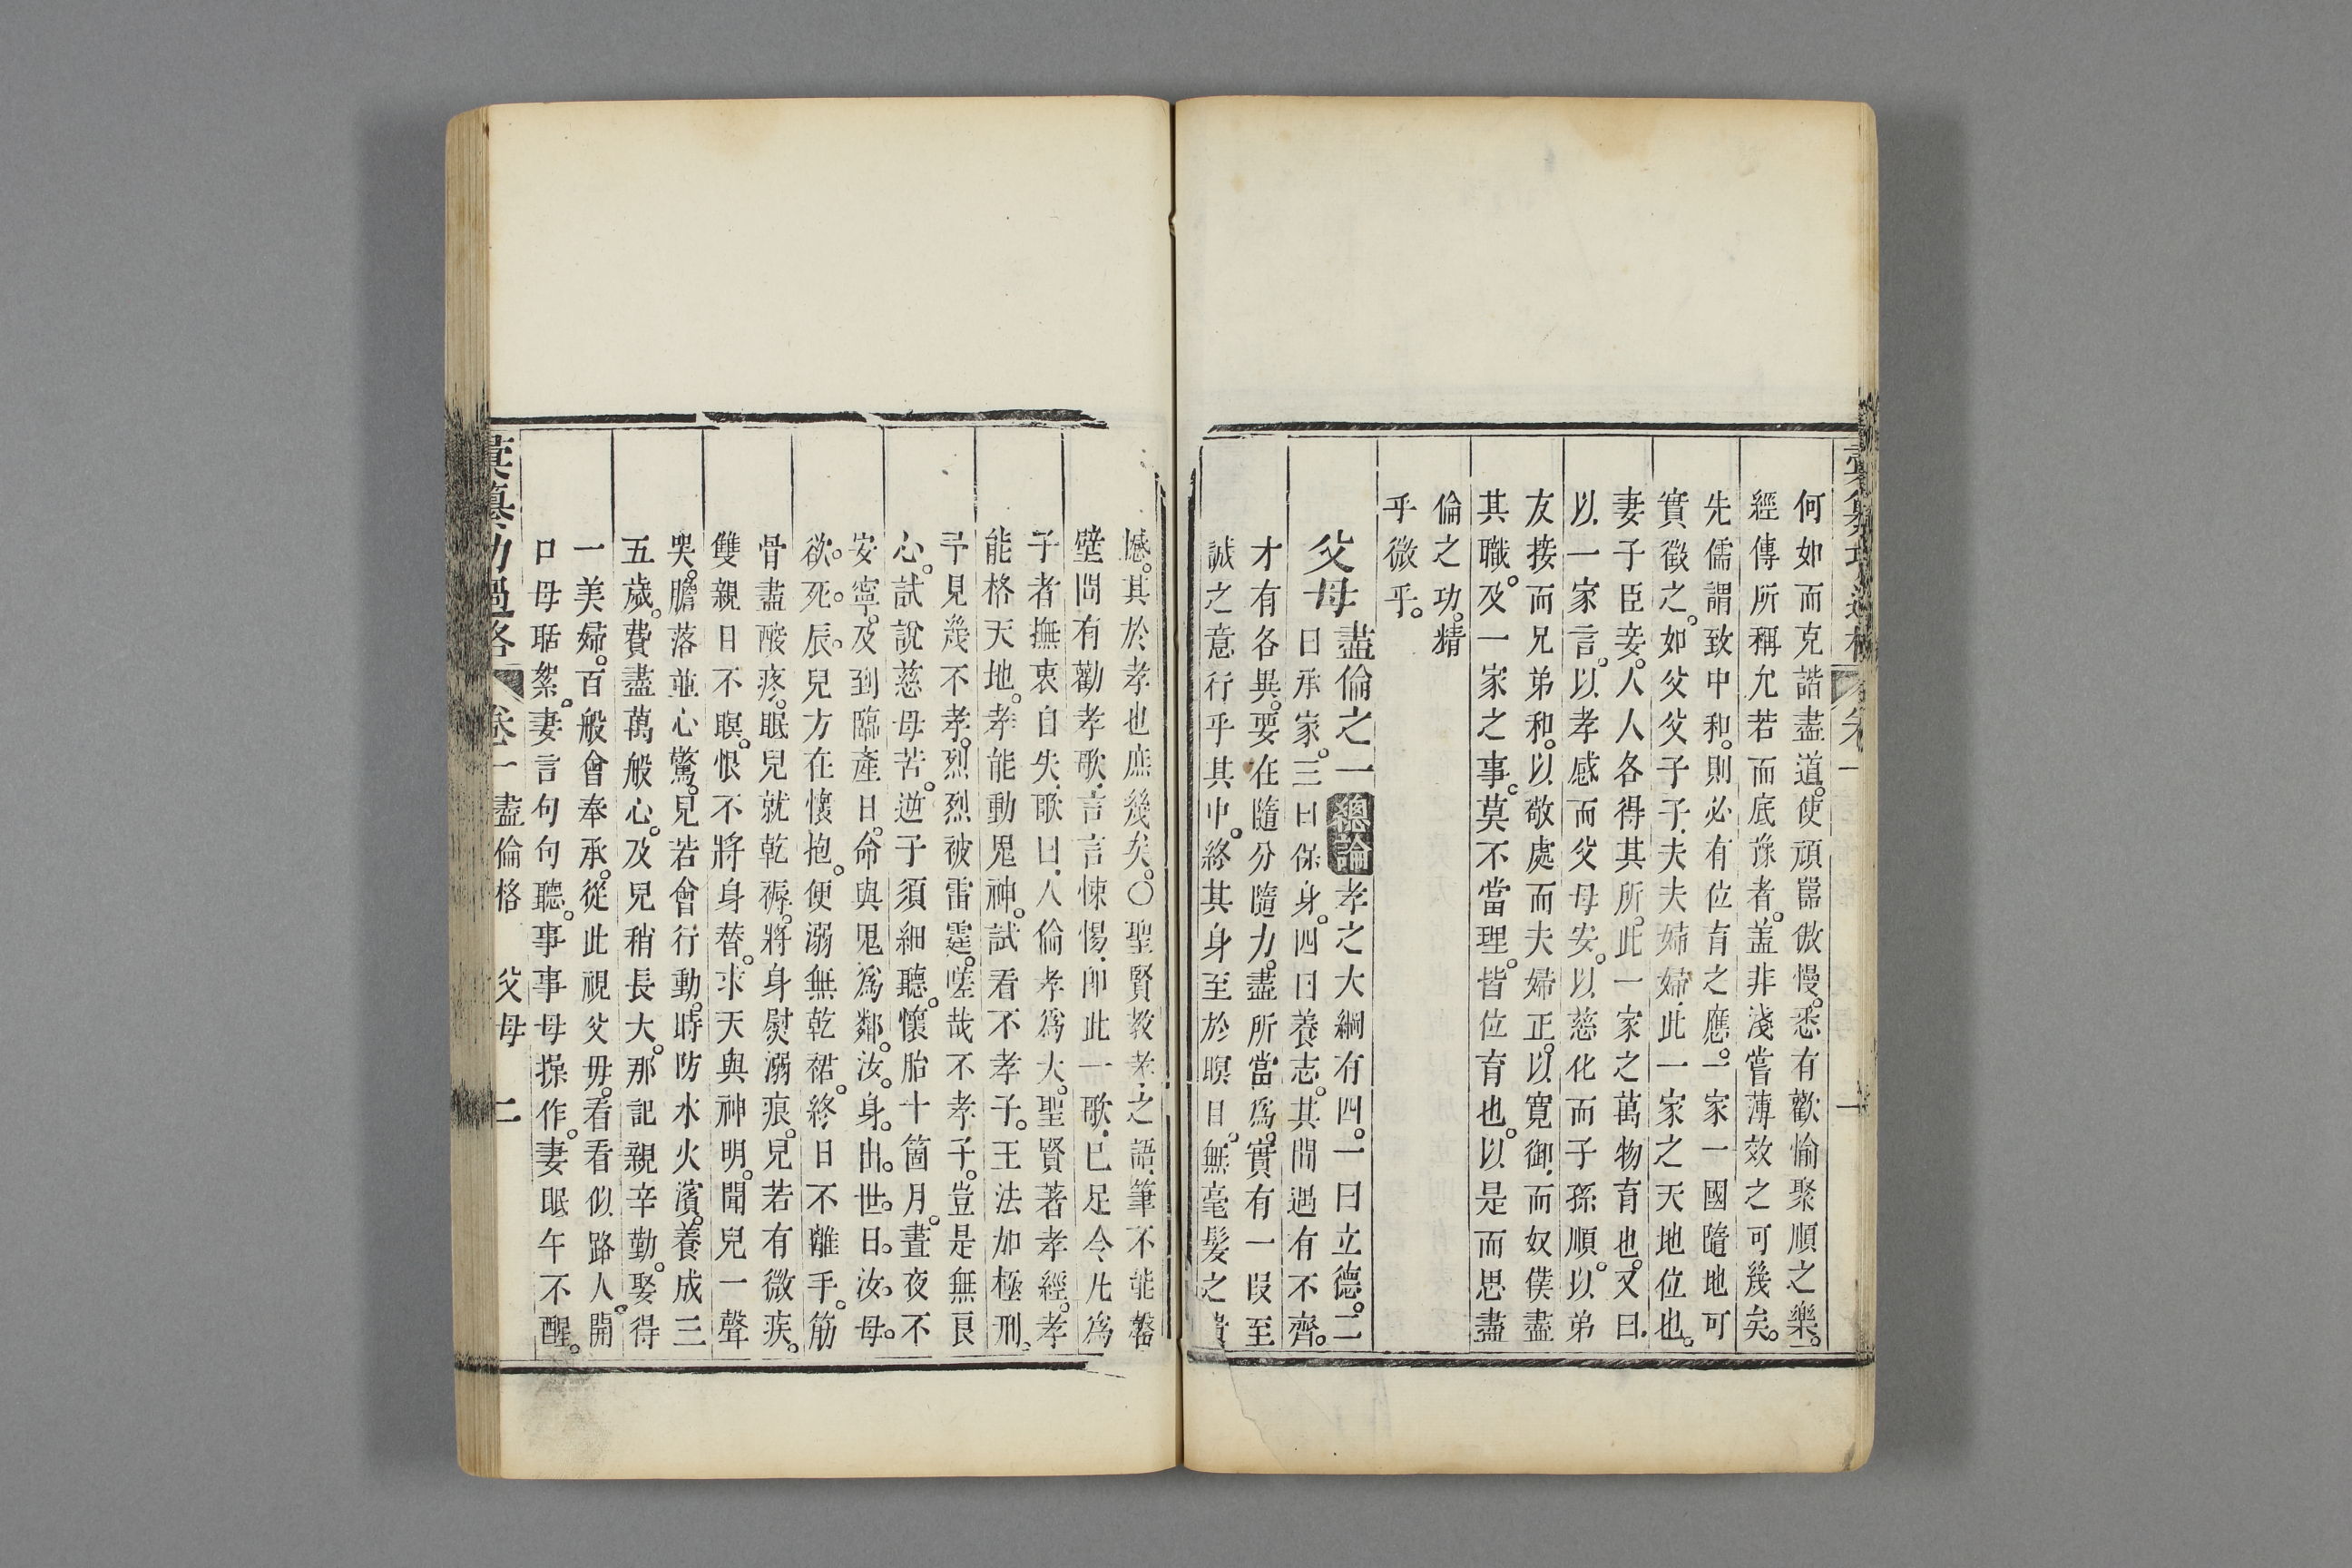 何如而克諧盡道。使頑嚚傲慢。悉有歡愉聚順之樂。
經傳所稱允若而底豫者。葢非淺嘗薄效之可幾矣。
先儒謂致中和。則必有位育之應。一家一國隨地可
實徵之。如父父子子。夫夫婦婦。此一家之天地位也。
妻子臣妾。人人各得其所。此一家之萬物育也。又曰。
以一家言。以孝感而父母安。以慈化而子孫順。以弟
友接而兄弟和。以敬處而夫婦正。以寬御。而奴僕盡
其職。及一家之事。莫不當理。皆位育也。以是而思盡
倫之功。精
乎微乎。
父母 盡倫之一 總論 孝之大綱有四。一曰立德。二
曰承家。三曰保身。四曰養志。其間遇有不齊。
才有各異。要在隨分隨力。盡所當爲。實有一段至
誠之意行乎其中。終其身至於暝目。無毫髮之
憾。其於孝也庶幾矣。○聖賢教孝之語。筆不能罄
壁間有勸孝歌。言言悚惕。卽此一歌。已足令凡爲
子者撫衷自失。歌曰。人倫孝爲大。聖賢著孝經。孝
能格天地。孝能動鬼神。試看不孝子。王法加極刑。
予見幾不孝。烈烈被雷霆。嗟哉不孝子。豈是無良
心。試說慈母苦。逆子須細聽。懷胎十箇月。晝夜不
安寧。及到臨產日。命與鬼爲鄰。汝。身。出。世。日。汝。母。
欲。死。辰。兒方在懷抱。便溺無乾裙。終日不離手。筋
骨盡酸疼。眠兒就乾褥。將身熨溺痕。兒若有微疾。
雙親日不暝。恨不將身替。求天與神明。聞兒一聲
哭。膽落並心驚。兒若會行動。時防水火濱。養成三
五歲。費盡萬般心。及兒稍長大。那記親辛勤。娶得
一美婦。百般會奉承。從此視父母。看看似路人。開
口母聒絮。妻言句句聽。事事母操作。妻眠午不醒。
彙纂功過格 卷一 盡倫格 父母 二